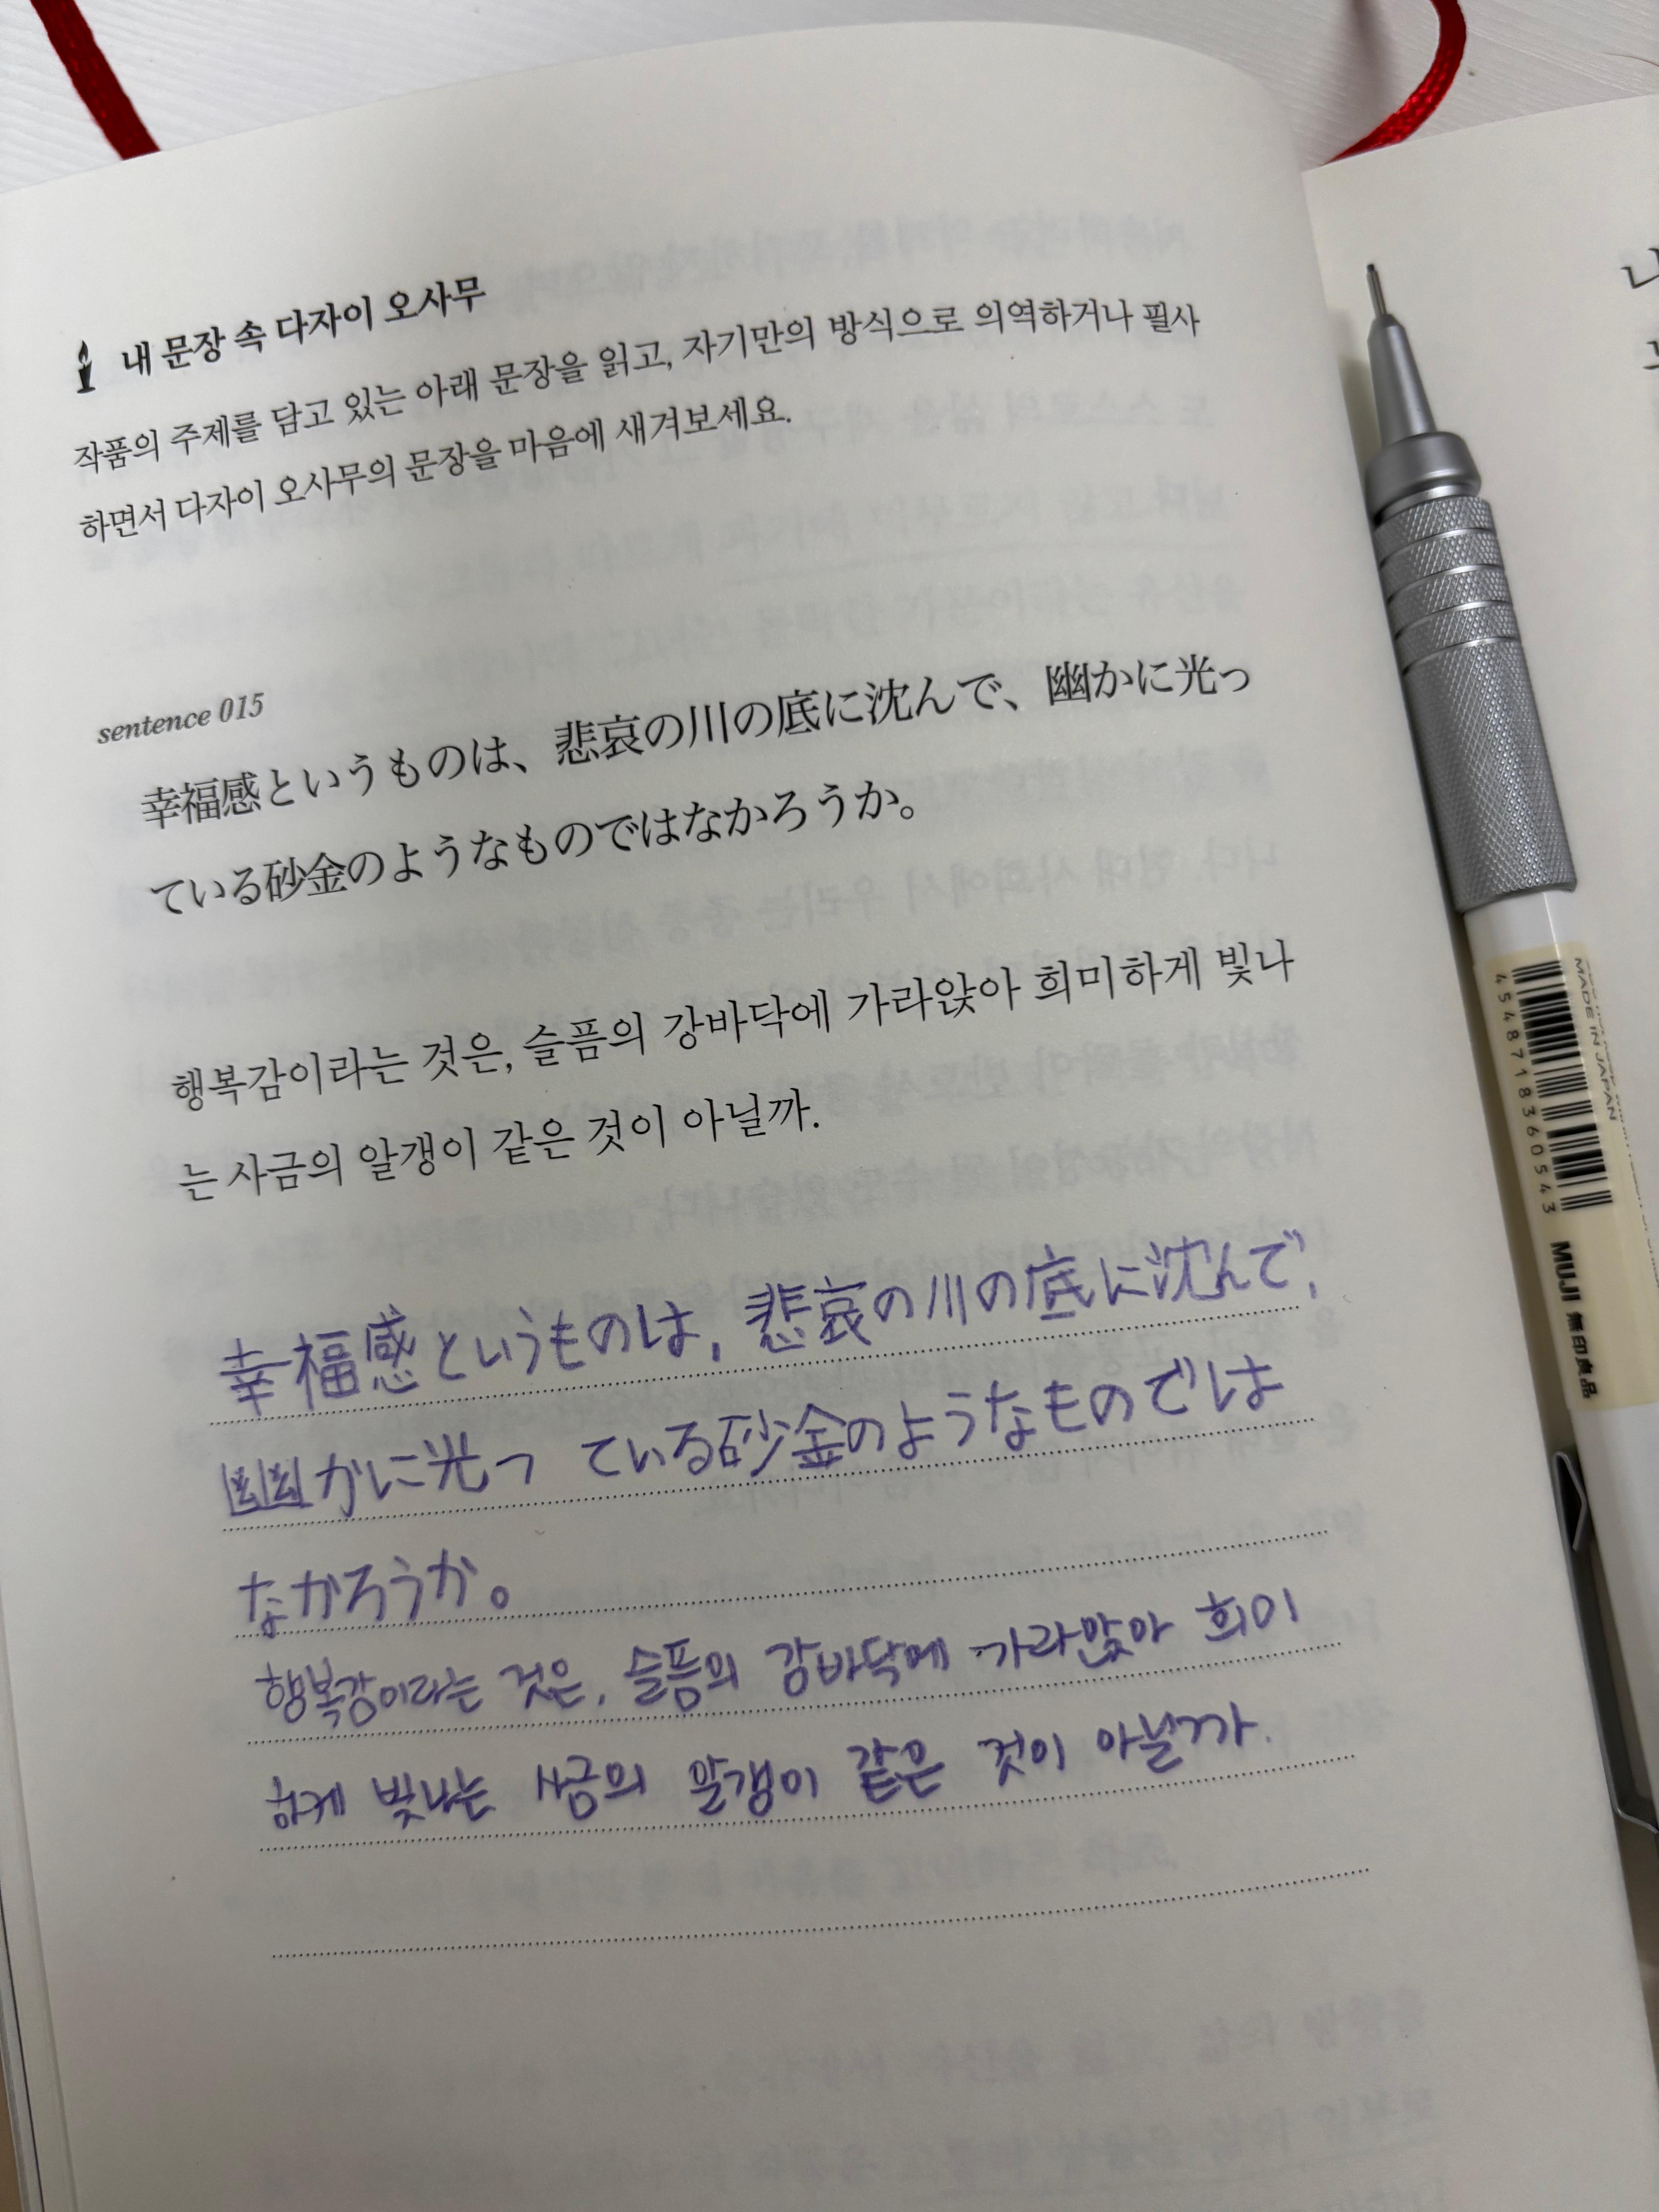 내 문장 속 다자이 오사무
작품의 주제를 담고 있는 아래 문장을 읽고, 자기만의 방식으로 의역하거나 필사
하면서 다자이 오사무의 문장을 마음에 새겨보세요.
sentence 015
幸福感というものは、悲哀の川の底に沈んで、幽かに光っ
ている砂金のようなものではなかろうか。
행복감이라는 것은, 슬픔의 강바닥에 가라앉아 희미하게 빛나
는 사금의 알갱이 같은 것이 아닐까.
幸福感というものは, 悲哀の川の底に沈んで,
幽かに光っ ている砂金のようなものでは
なかろうか。
행복감이라는 것은, 슬픔의 강바닥에 가라앉아 희미
하게 빛나는 사금의 알갱이 같은 것이 아닐까.
MADE IN JAPAN
4548718360543
MUJI 無印良品